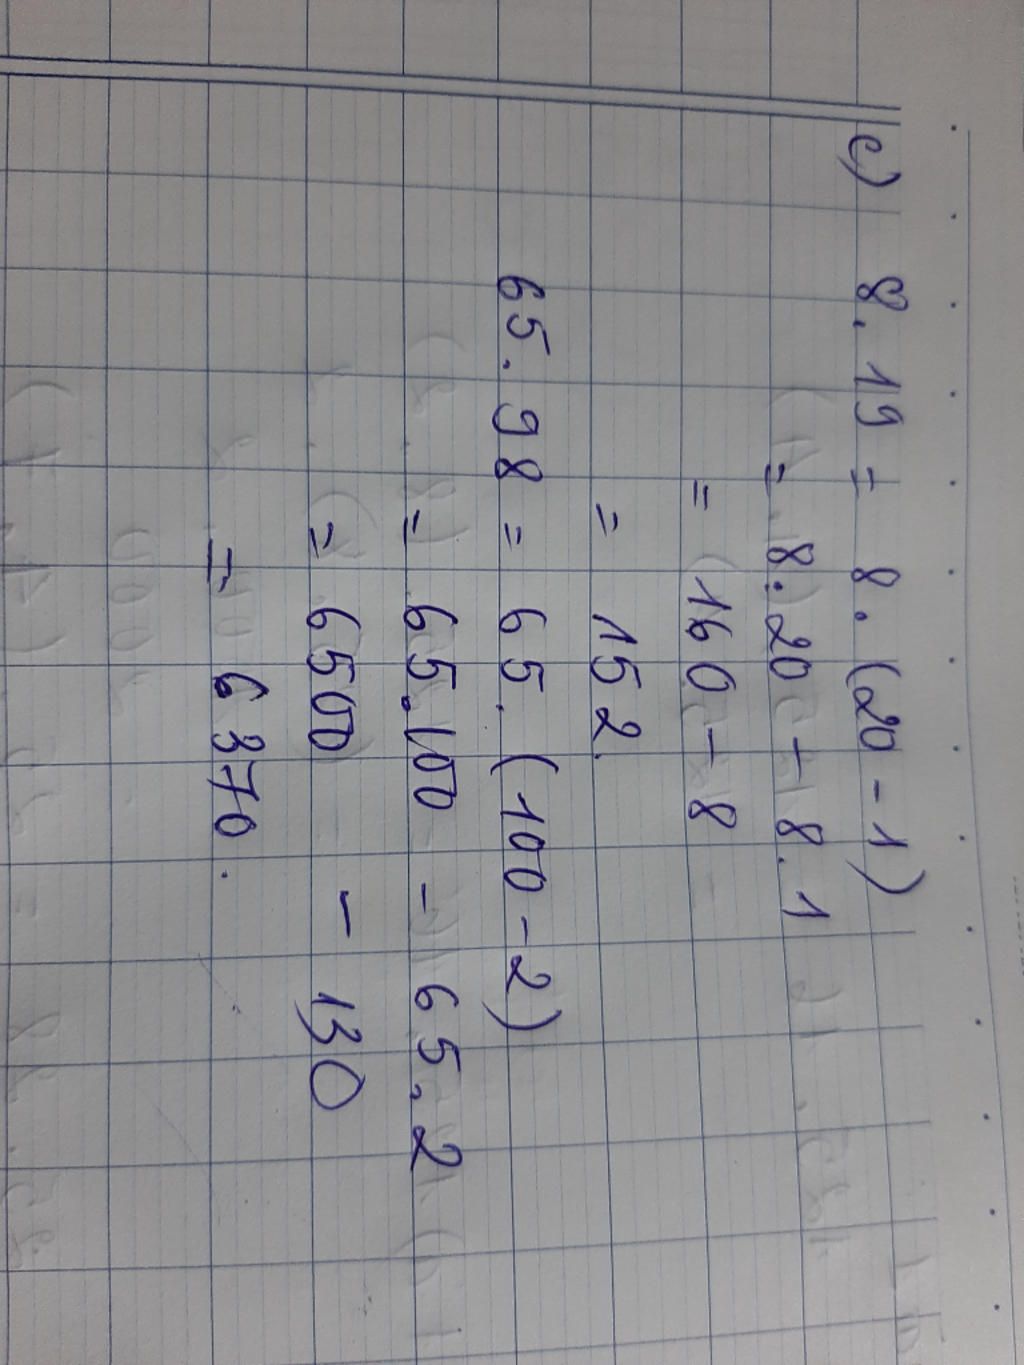 c) 8.19 = 8.(20-1)
= 8.20 - 8.1
= 160 - 8
= 152.
65.98 = 65.(100-2)
= 65.100 - 65.2
= 6500 - 130
= 6370.